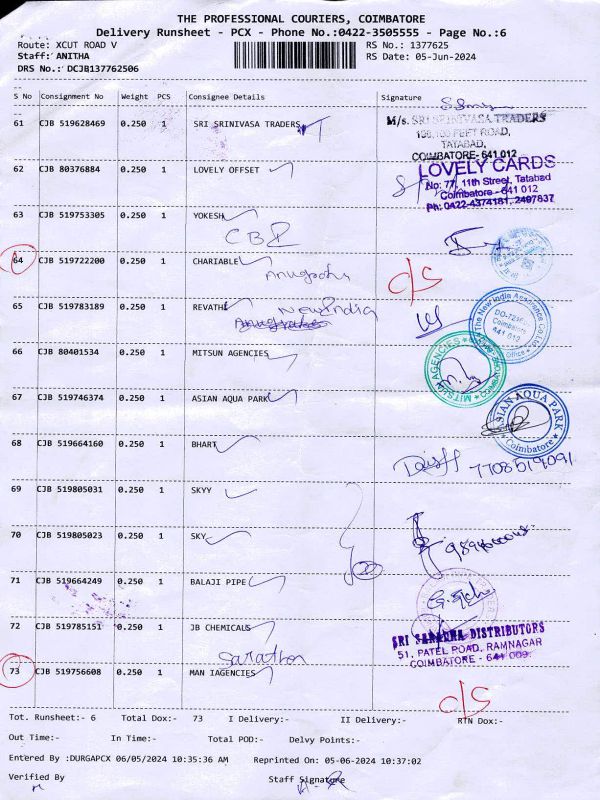 THE PROFESSIONAL COURIERS, COIMBATORE
Delivery Runsheet - PCX - Phone No.:0422-3505555 - Page No.:6
Route: XCUT ROAD V
RS No.: 1377625
Staff: ANITHA
RS Date: 05-Jun-2024
DRS No.: DCJB137762506
S No Consignment No Weight PCS Consignee Details Signature
61 CJB 519628469 0.250 1 SRI SRINIVASA TRADERS
M/s. SRI SRINIVASA TRADERS
TATABAD,
COIMBATORE- 641 012
62 CJB 80376884 0.250 1 LOVELY OFFSET
LOVELY CARDS
No: 77, 11th Street, Tatabad
Coimbatore - 641 012
Ph: 0422-4374181, 2497837
63 CJB 519753305 0.250 1 YOKESH
64 CJB 519722200 0.250 1 CHARIABLE
c/s
65 CJB 519783189 0.250 1 REVATHI
New India
The New India Assurance Co. Ltd
Coimbatore
641 012
Office
66 CJB 80401534 0.250 1 MITSUN AGENCIES
67 CJB 519746374 0.250 1 ASIAN AQUA PARK
ASIAN AQUA PARK
Coimbatore
68 CJB 519664160 0.250 1 BHART
7708519091
69 CJB 519805031 0.250 1 SKYY
70 CJB 519805023 0.250 1 SKY
71 CJB 519664249 0.250 1 BALAJI PIPE
72 CJB 519785151 0.250 1 JB CHEMICALS
SRI SARADHA DISTRIBUTORS
51, PATEL ROAD, RAMNAGAR
COIMBATORE - 641 009.
73 CJB 519756608 0.250 1 MAN IAGENCIES
c/s
Tot. Runsheet:- 6 Total Dox:- 73 I Delivery:- II Delivery:- RTN Dox:-
Out Time:- In Time:- Total POD:- Delvy Points:-
Entered By :DURGAPCX 06/05/2024 10:35:36 AM Reprinted On: 05-06-2024 10:37:02
Verified By Staff Signature